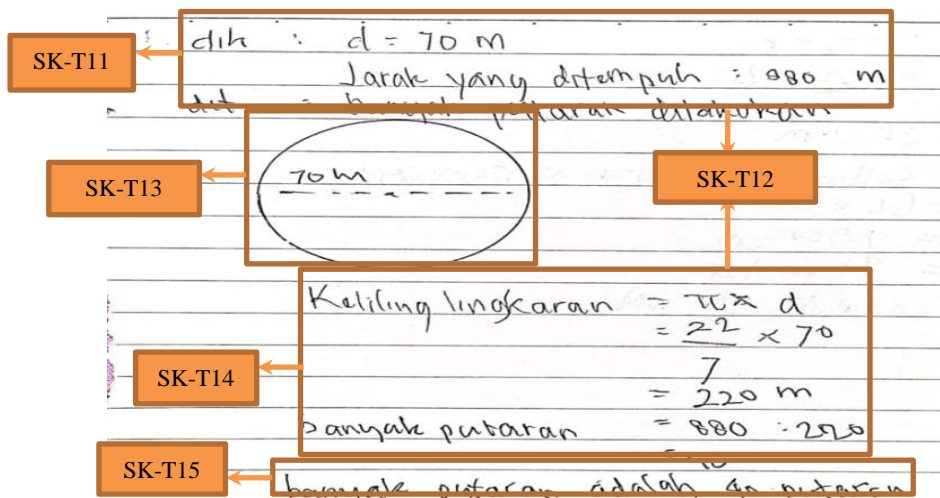 SK-T11
dik : d = 70 m
Jarak yang ditempuh : 880 m
dit : banyak putaran dilakukan
SK-T13
70 m
SK-T12
Keliling lingkaran = π x d
= 22/7 x 70
= 220 m
SK-T14
banyak putaran = 880 : 220
SK-T15
banyak putaran adalah putaran